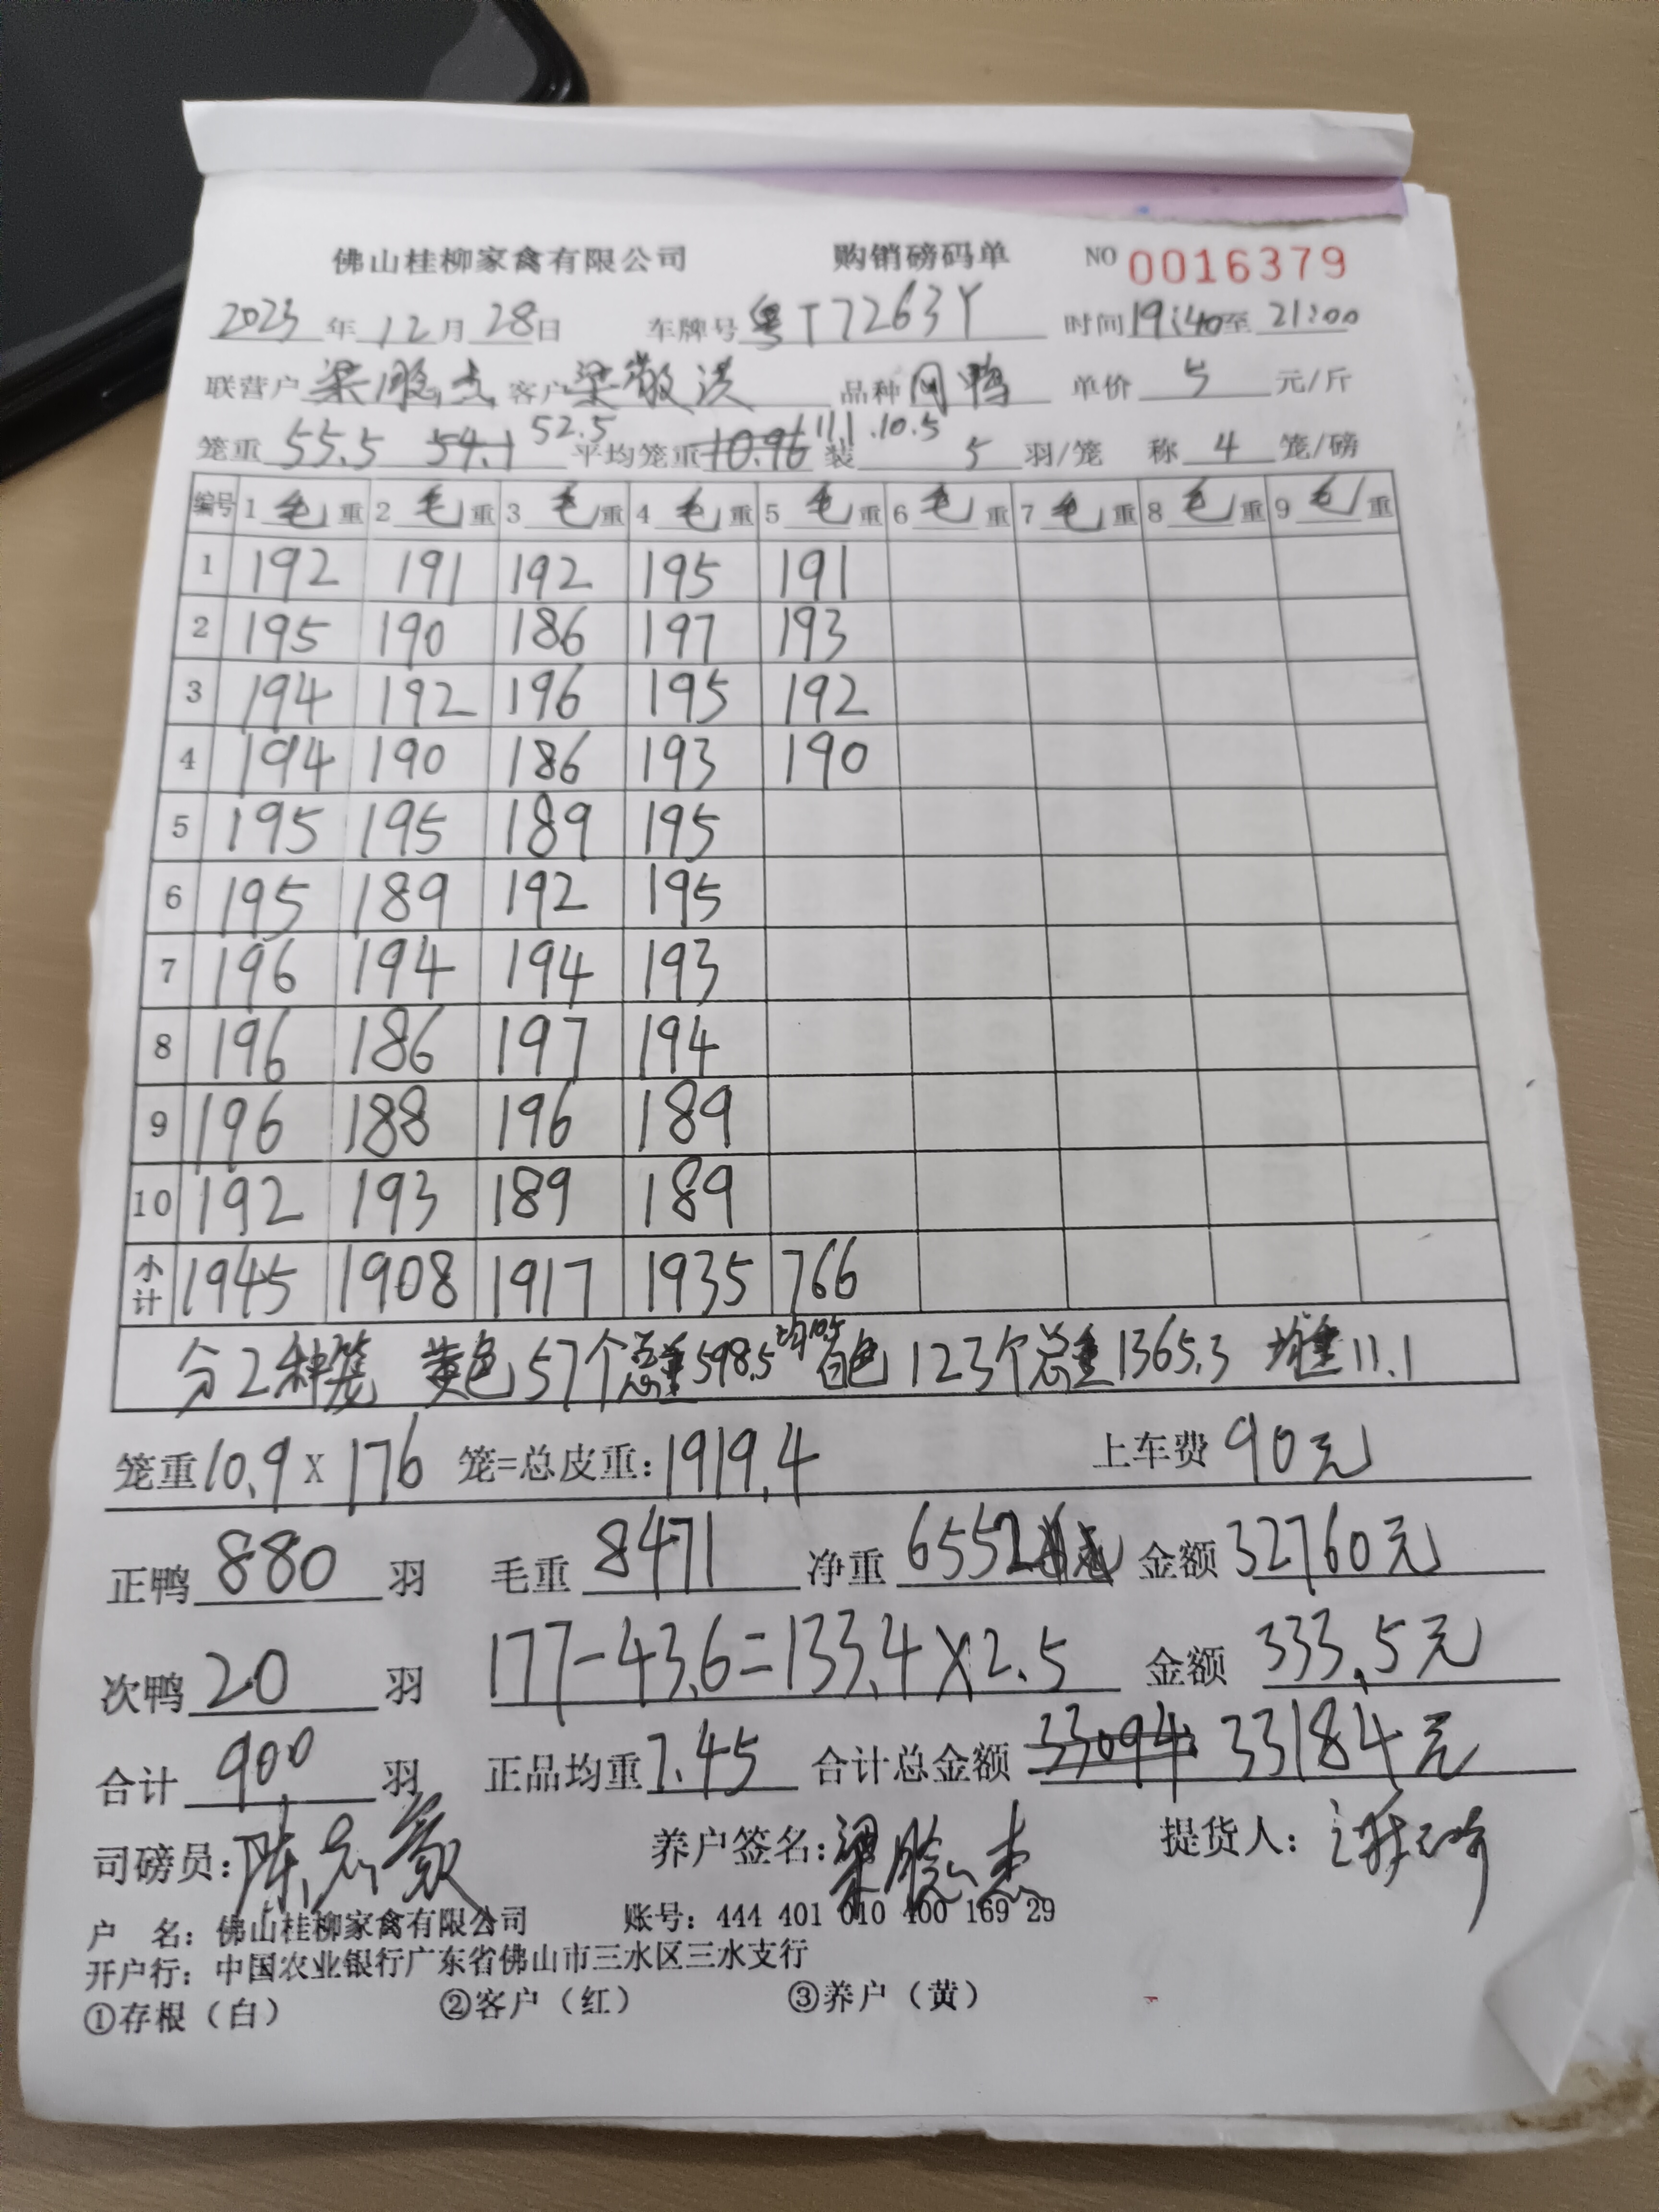 佛山桂柳家禽有限公司 购销磅码单 NO 0016379
2023 年 12 月 28 日 车牌号 粤T7263Y 时间 19:40 至 21:00
联营户 梁 杰 客户 梁敬洪 品种 鸭 单价 5 元/斤
笼重 55.5 54.1 52.5 平均笼重 10.96 11.1 .10.5 装 5 羽/笼 称 4 笼/磅
编号 1 毛 重 2 毛 重 3 毛 重 4 毛 重 5 毛 重 6 毛 重 7 毛 重 8 毛 重 9 毛 重
1 192 191 192 195 191
2 195 190 186 197 193
3 194 192 196 195 192
4 194 190 186 193 190
5 195 195 189 195
6 195 189 192 195
7 196 194 194 193
8 196 186 197 194
9 196 188 196 189
10 192 193 189 189
小计 1945 1908 1917 1935 766
分2种笼 黄色57个总重598.5 均10.5 白色 123个总重1365.3 均重11.1
笼重 10.9 X 176 笼=总皮重: 1919.4 上车费 90元
正鸭 880 羽 毛重 8471 净重 6552 金额 32760元
次鸭 20 羽 177-43.6=133.4X2.5 金额 333.5元
合计 900 羽 正品均重 7.45 合计总金额 33094 33184元
司磅员: 陈 养户签名: 梁 杰 提货人:
户 名: 佛山桂柳家禽有限公司 账号: 444 401 010 400 169 29
开户行: 中国农业银行广东省佛山市三水区三水支行
①存根（白） ②客户（红） ③养户（黄）